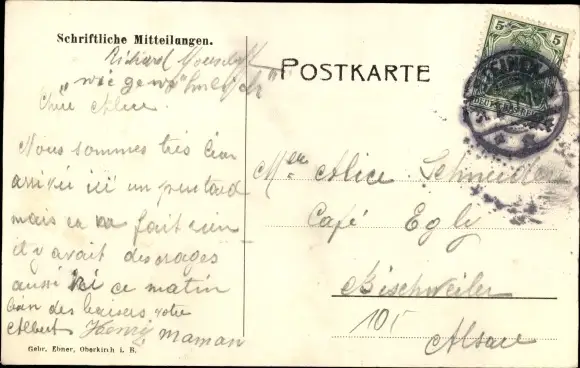 Schriftliche Mitteilungen.
Richard
"wie gewöhnlich"
Chère Alice.
Nous sommes très bien
arrivés ici un peu tard
mais ça ne fait rien
il y avait des orages
aussi ici ce matin
bien des baisers, votre
Albert Henry, maman
Gebr. Ebner, Oberkirch i. B.
POSTKARTE
5 5
Melle Alice Schneider
Café Egly
Bischweiler
105
Alsace